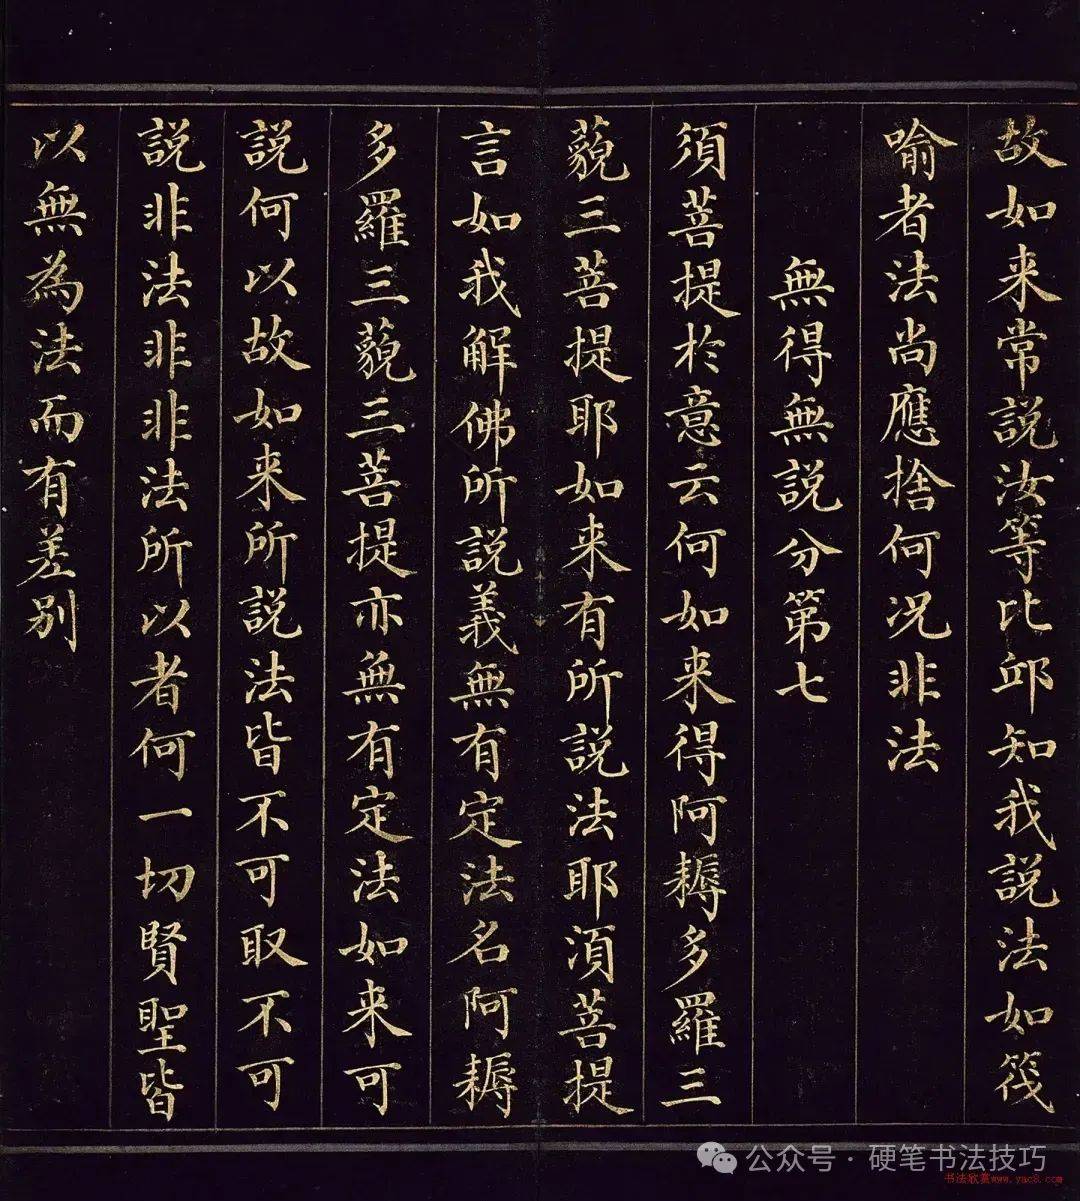 故如来常説汝等比邱知我説法如筏
喻者法尚應捨何况非法
無得無説分第七
須菩提於意云何如来得阿耨多羅三
藐三菩提耶如来有所説法耶須菩提
言如我解佛所説義無有定法名阿耨
多羅三藐三菩提亦無有定法如来可
説何以故如来所説法皆不可取不可
説非法非非法所以者何一切賢聖皆
以無為法而有差别
公众号·硬笔书法技巧
书法欣赏www.yac8.com